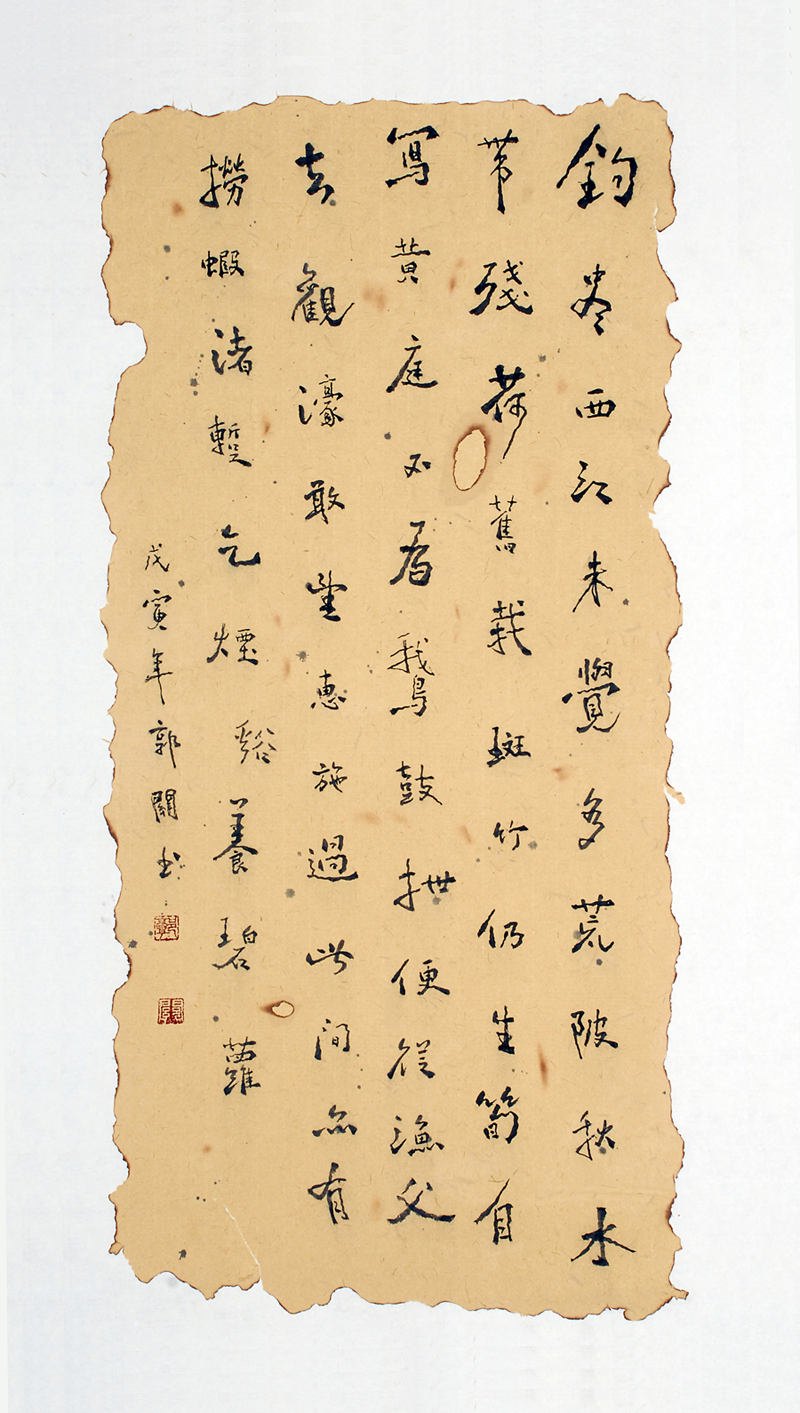 鈎卷西江未覺多荒陂秋水
帶殘荷舊栽斑竹仍生筍自
寫黃庭不為鵝鼓枻便從漁父
去觀濠敢望惠施過此間亦有
撈蝦渚暫乞煙谿養碧蘿
戊寅年郭闓書